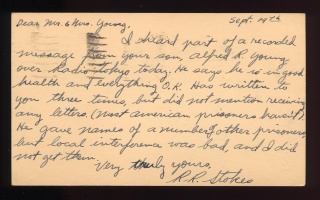 Sept. 14th
Dear Mr. & Mrs. Young,
I heard part of a recorded
message from your son, Alfred R. Young
over Radio Tokyo today. He says he is in good
health and everything O.K. Has written to
you three times, but did not mention receiving
any letters. (Most american prisoners haven't).
He gave names of a number other prisoners,
but local interference was bad, and I did
not get them.
Very truly yours,
R.R. Stokes